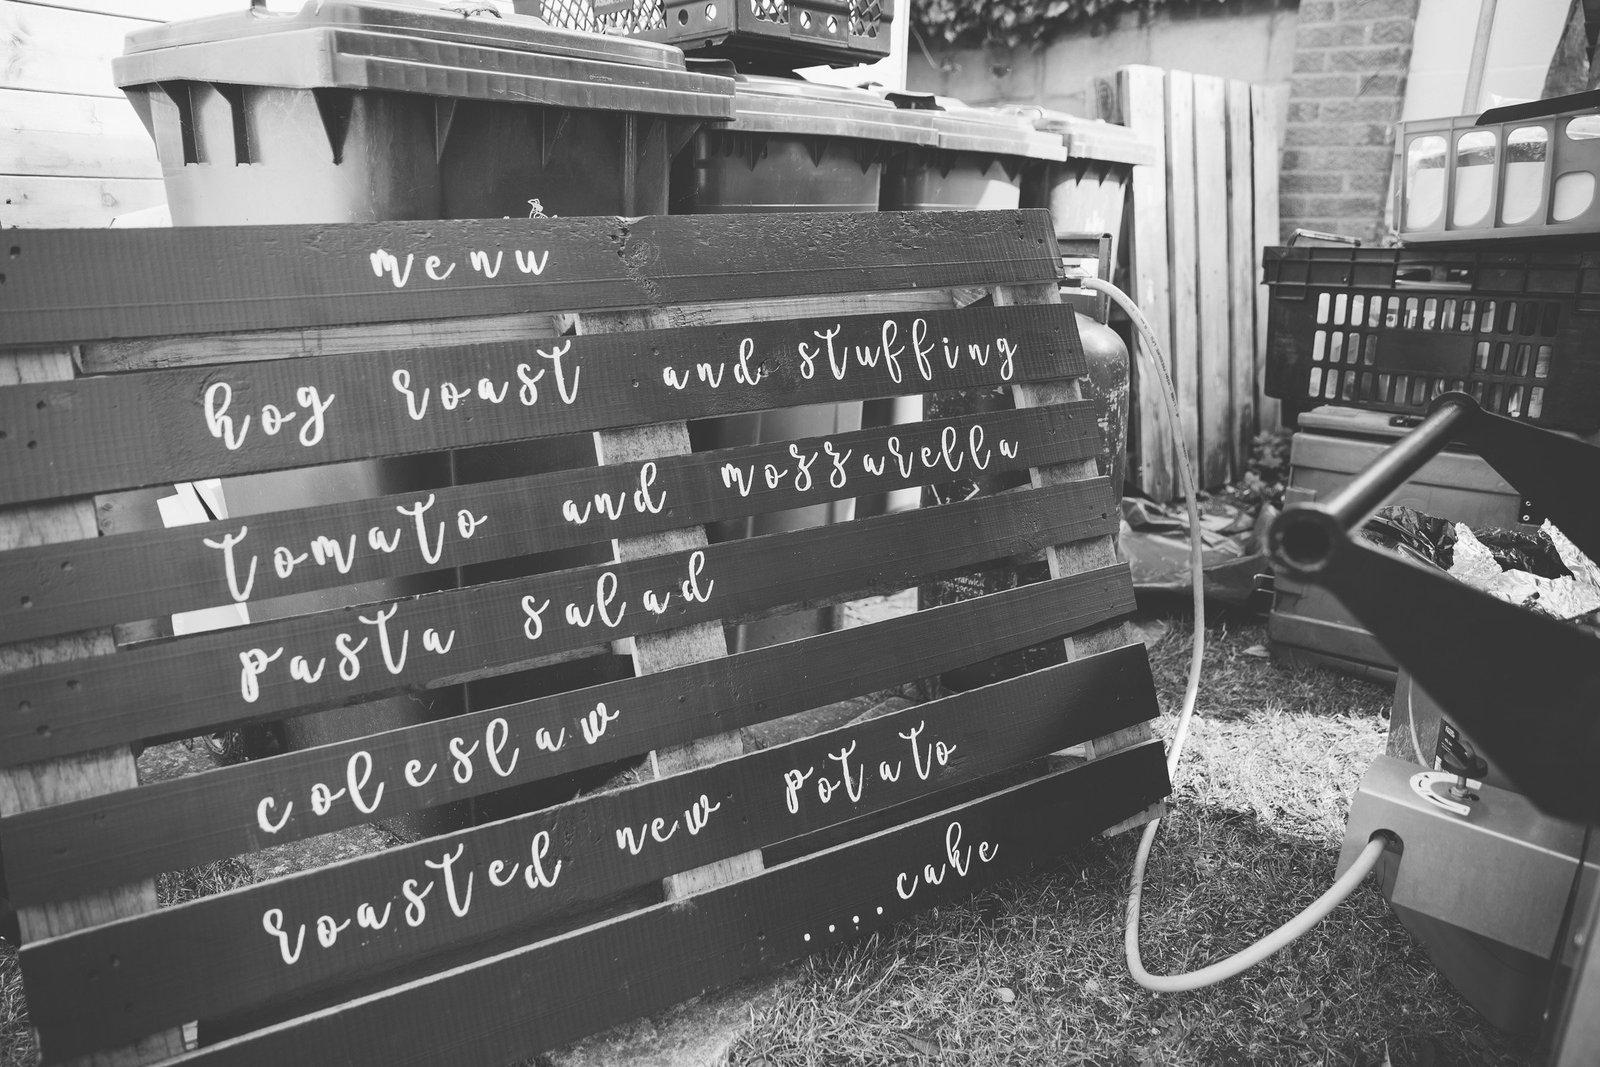 menu
hog roast and stuffing
tomato and mozzarella
pasta salad
coleslaw
roasted new potato
....cake